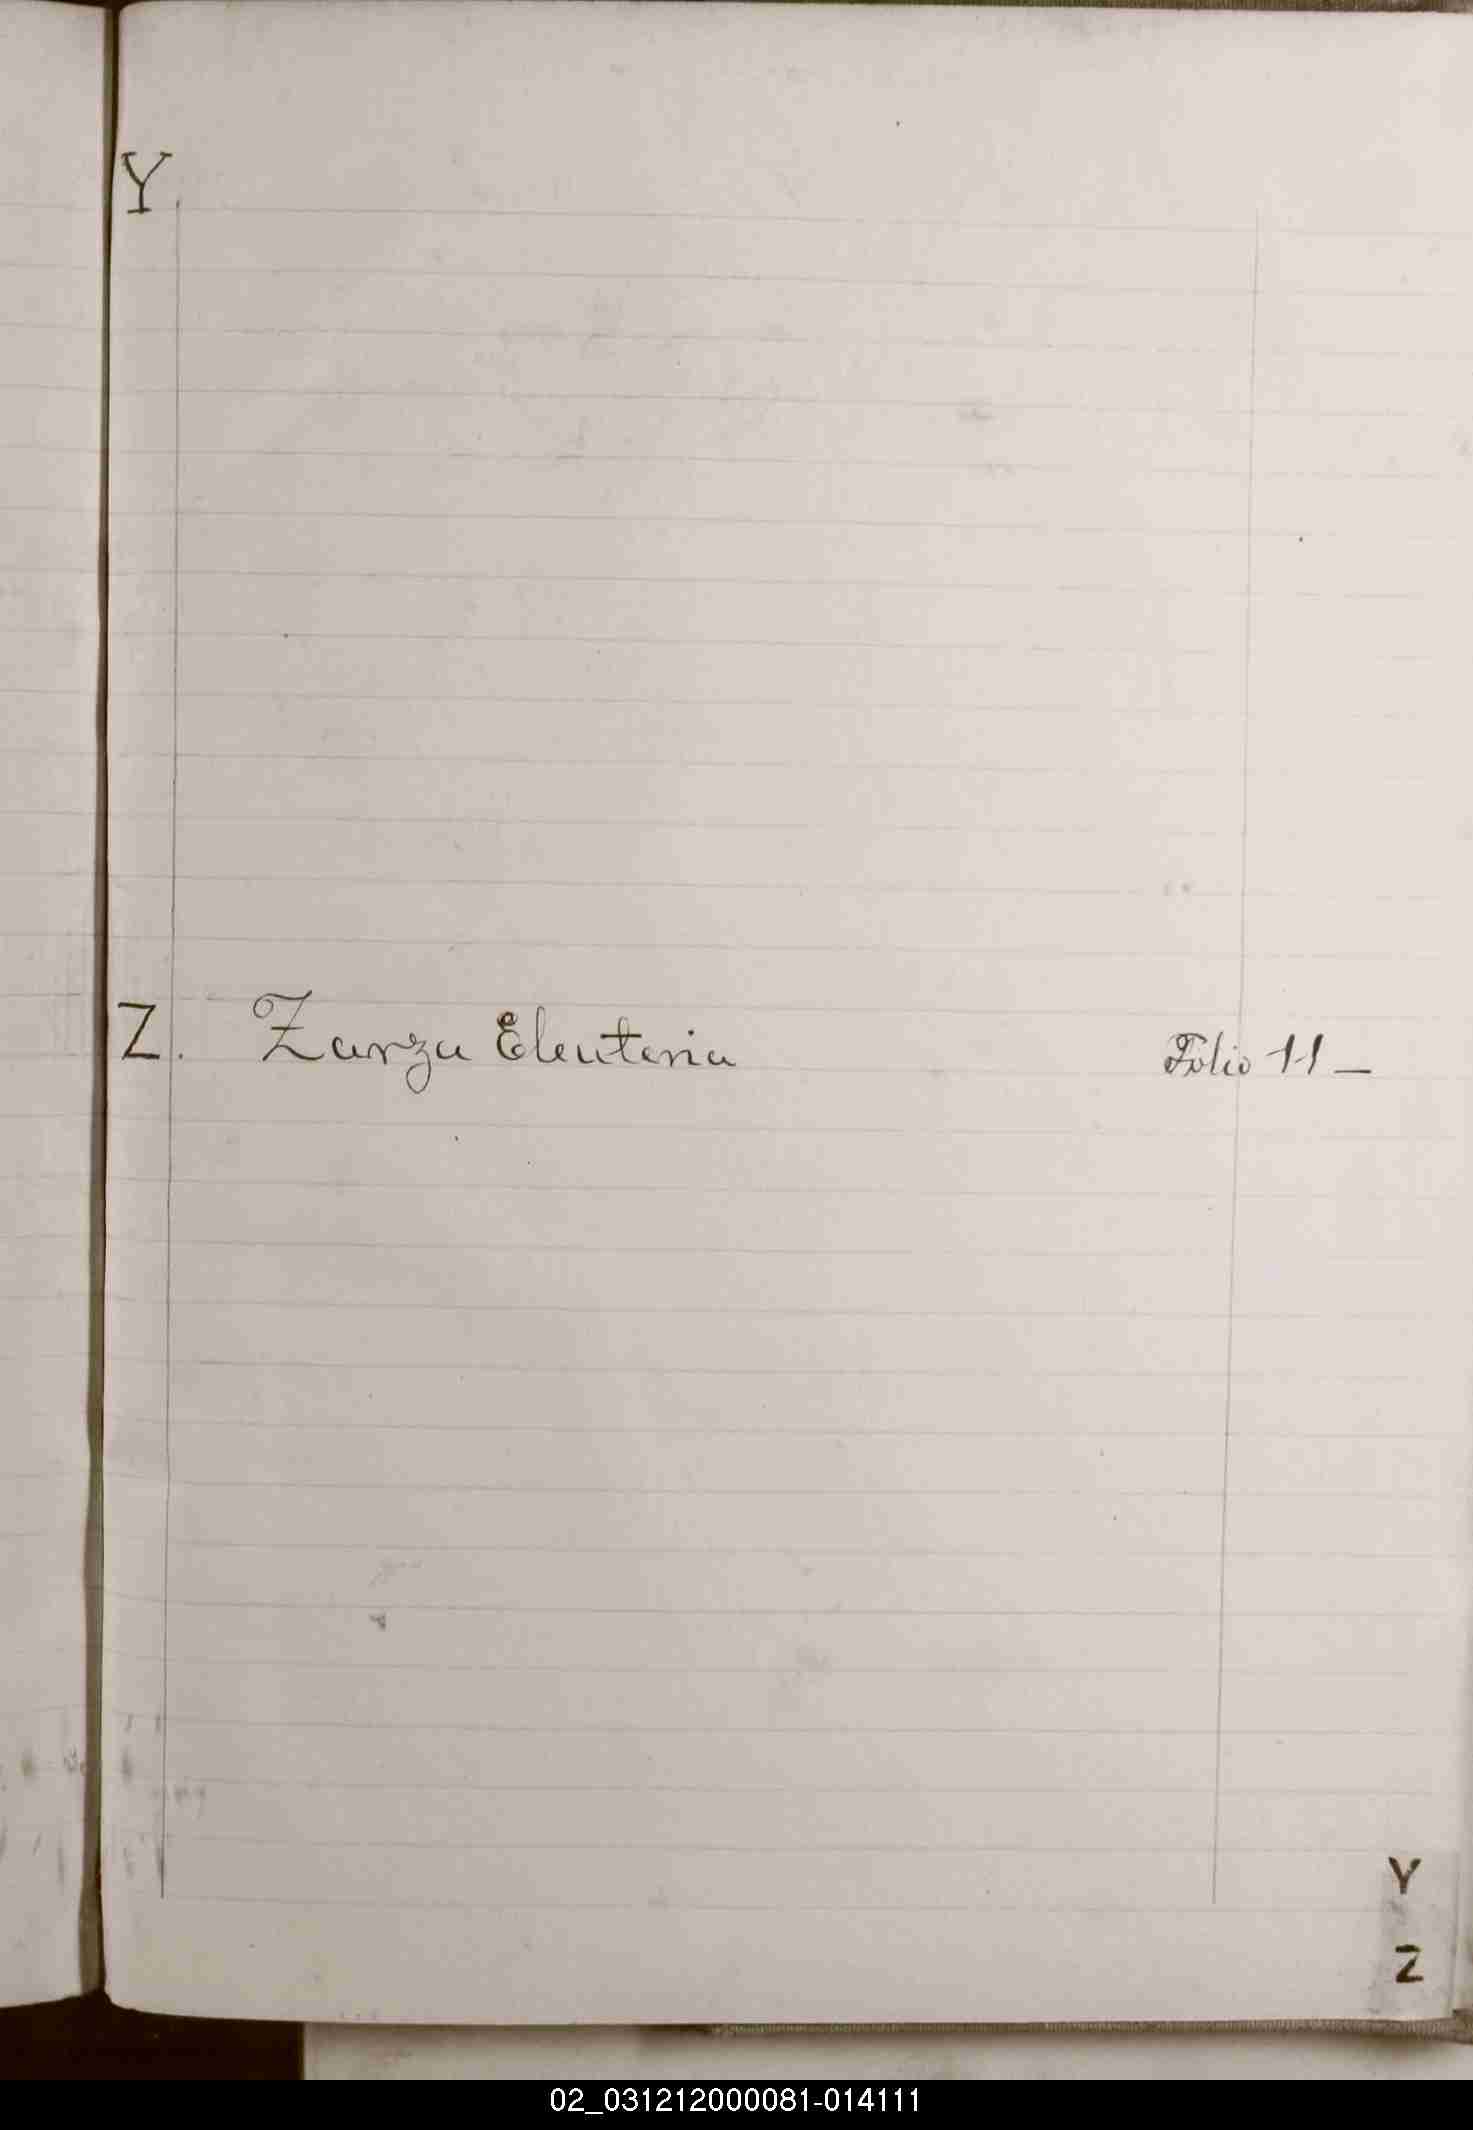 Y
Z. Zarza Eleuteria Folio 11 _
Y
Z
02_031212000081-014111